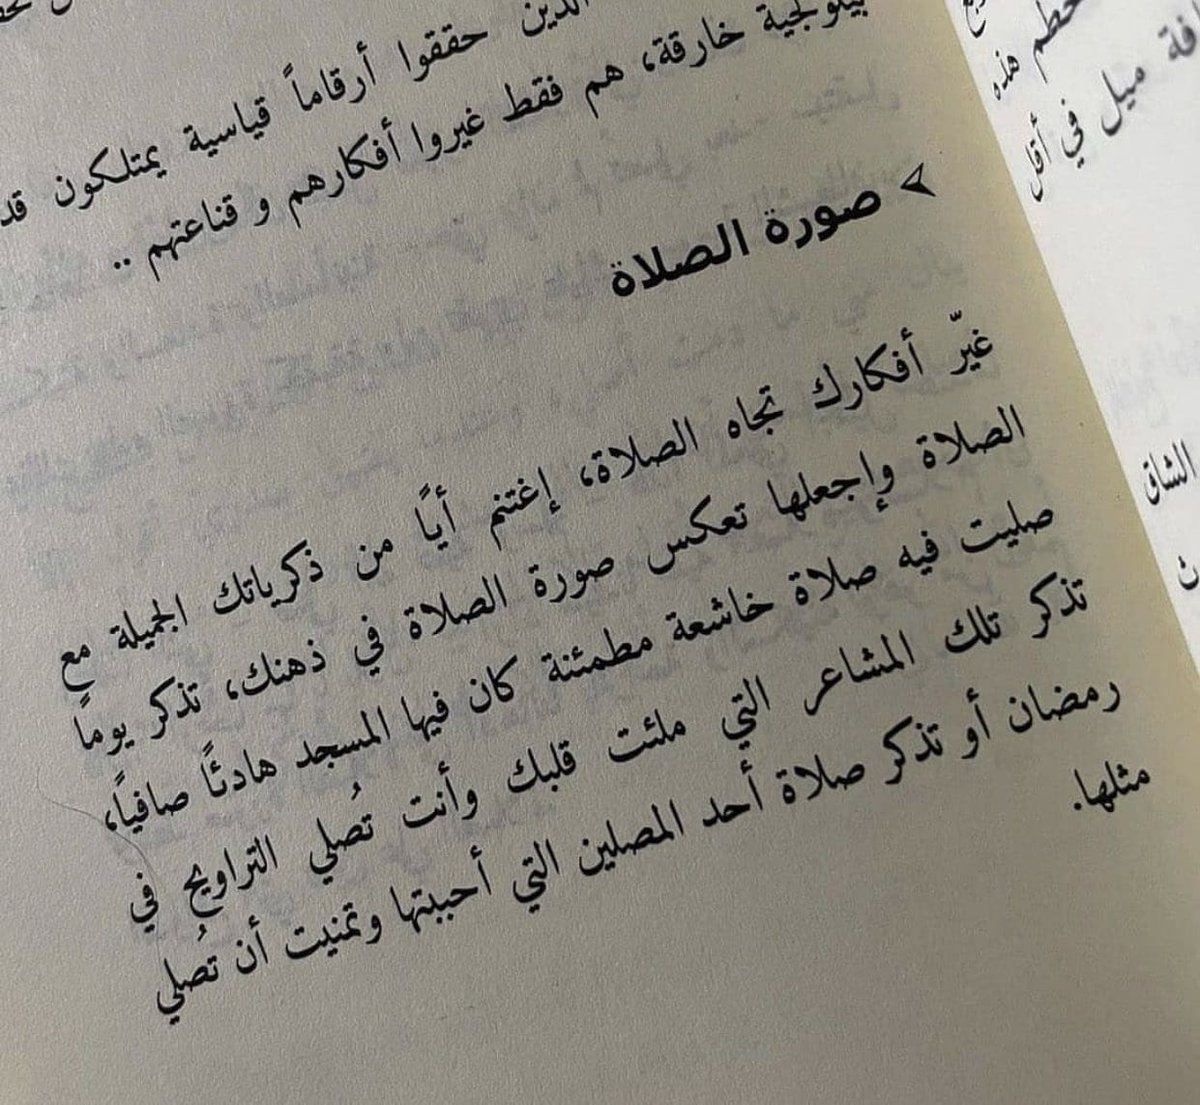 الذين حققوا أرقاماً قياسية يمتلكون
بيلوجية خارقة، هم فقط غيروا أفكارهم و قناعتهم ..
صورة الصلاة
غيّر أفكارك تجاه الصلاة، إغتنم أياً من ذكرياتك الجميلة مع
الصلاة وإجعلها تعكس صورة الصلاة في ذهنك، تذكر يوماً
صليت فيه صلاة خاشعة مطمئنة كان فيها المسجد هادئاً صافياً،
تذكر تلك المشاعر التي ملئت قلبك وأنت تُصلي التراويح في
رمضان أو تذكر صلاة أحد المصلين التي أحببتها وتمنيت أن تُصلي
مثلها.
هذه
ميل في أقل
الشاق